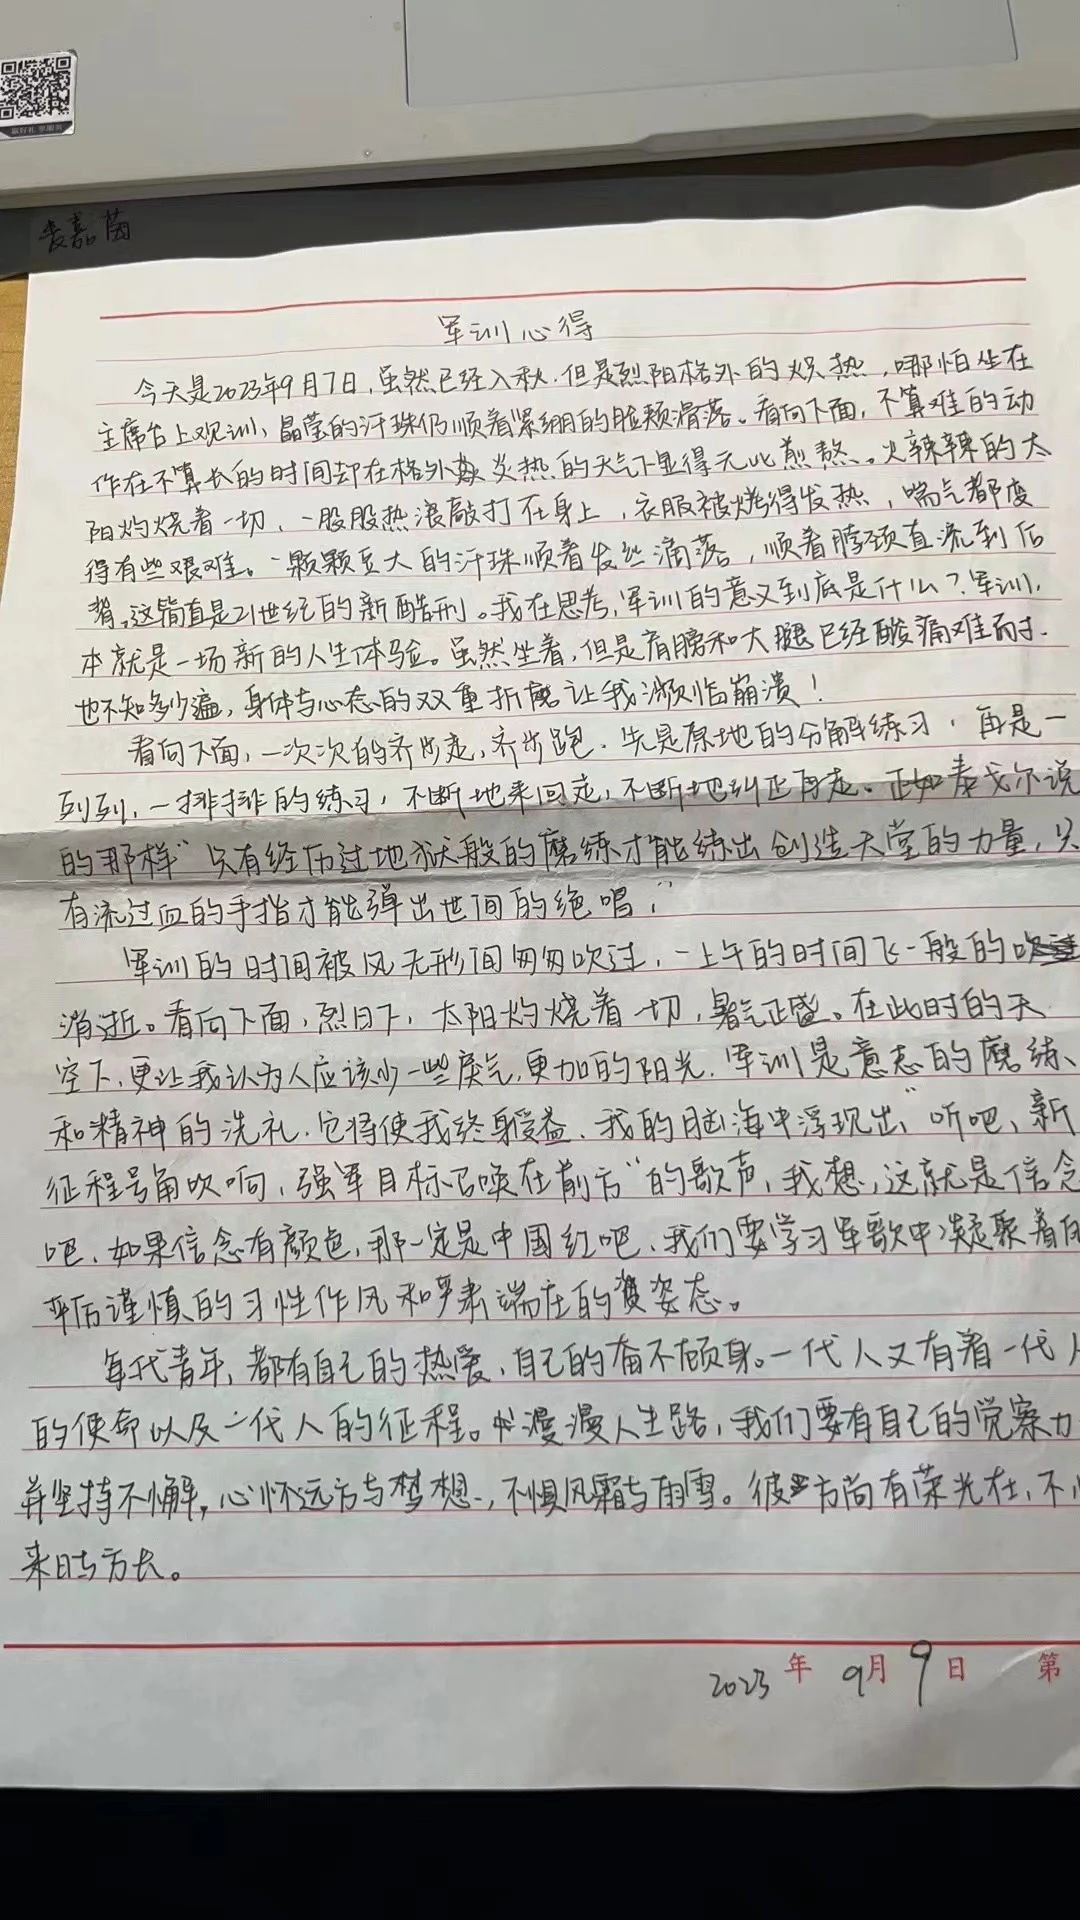 嘉茵
军训心得
今天是2023年9月7日,虽然已经入秋,但是烈阳格外的炽热,哪怕坐在
主席台上观训、晶莹的汗珠仍顺着紧绷的脸颊滑落。看向下面,不算难的动
作在不算长的时间却在格外炎热的天气下显得无比煎熬。火辣辣的太
阳灼烧着一切,一股股热浪敲打在身上,衣服被烤得发热,喘气都变
得有些艰难。一颗颗豆大的汗珠顺着发丝滴落,顺着脖颈直流到后
背。这简直是21世纪的新酷刑。我在思考,军训的意义到底是什么?军训,
本就是一场新的人生体验。虽然坐着,但是肩膀和大腿已经酸痛难耐,
也不知多少遍,身体与心态的双重折磨让我濒临崩溃!
看向下面,一次次的齐步走,齐步跑,先是原地的分解练习,再是一
列列,一排排的练习,不断地来回走,不断地纠正再走。正如泰戈尔说
的那样“只有经历过地狱般的磨练才能练出创造天堂的力量,只
有流过血的手指才能弹出世间的绝唱,”
军训的时间被风无形间匆匆吹过,一上午的时间飞一般的
消逝。看向下面,烈日下,太阳灼烧着一切,暑气正盛。在此时的天
空下,更让我认为人应该少一些戾气,更加的阳光,军训是意志的磨练、
和精神的洗礼,它将使我终身受益,我的脑海中浮现出“听吧,新
征程号角吹响,强军目标召唤在前方”的歌声,我想,这就是信念
吧,如果信念有颜色,那一定是中国红吧,我们要学习军歌中凝聚着的
平历谨慎的习性作风和严肃端庄的姿态。
年代青年,都有自己的热爱,自己的奋不顾身。一代人又有着一代人
的使命以及一代人的征程。漫漫人生路,我们要有自己的觉察力
并坚持不懈,心怀远方与梦想,不惧风霜与雨雪。彼方尚有荣光在,不
来日方长。
2023年9月9日 第